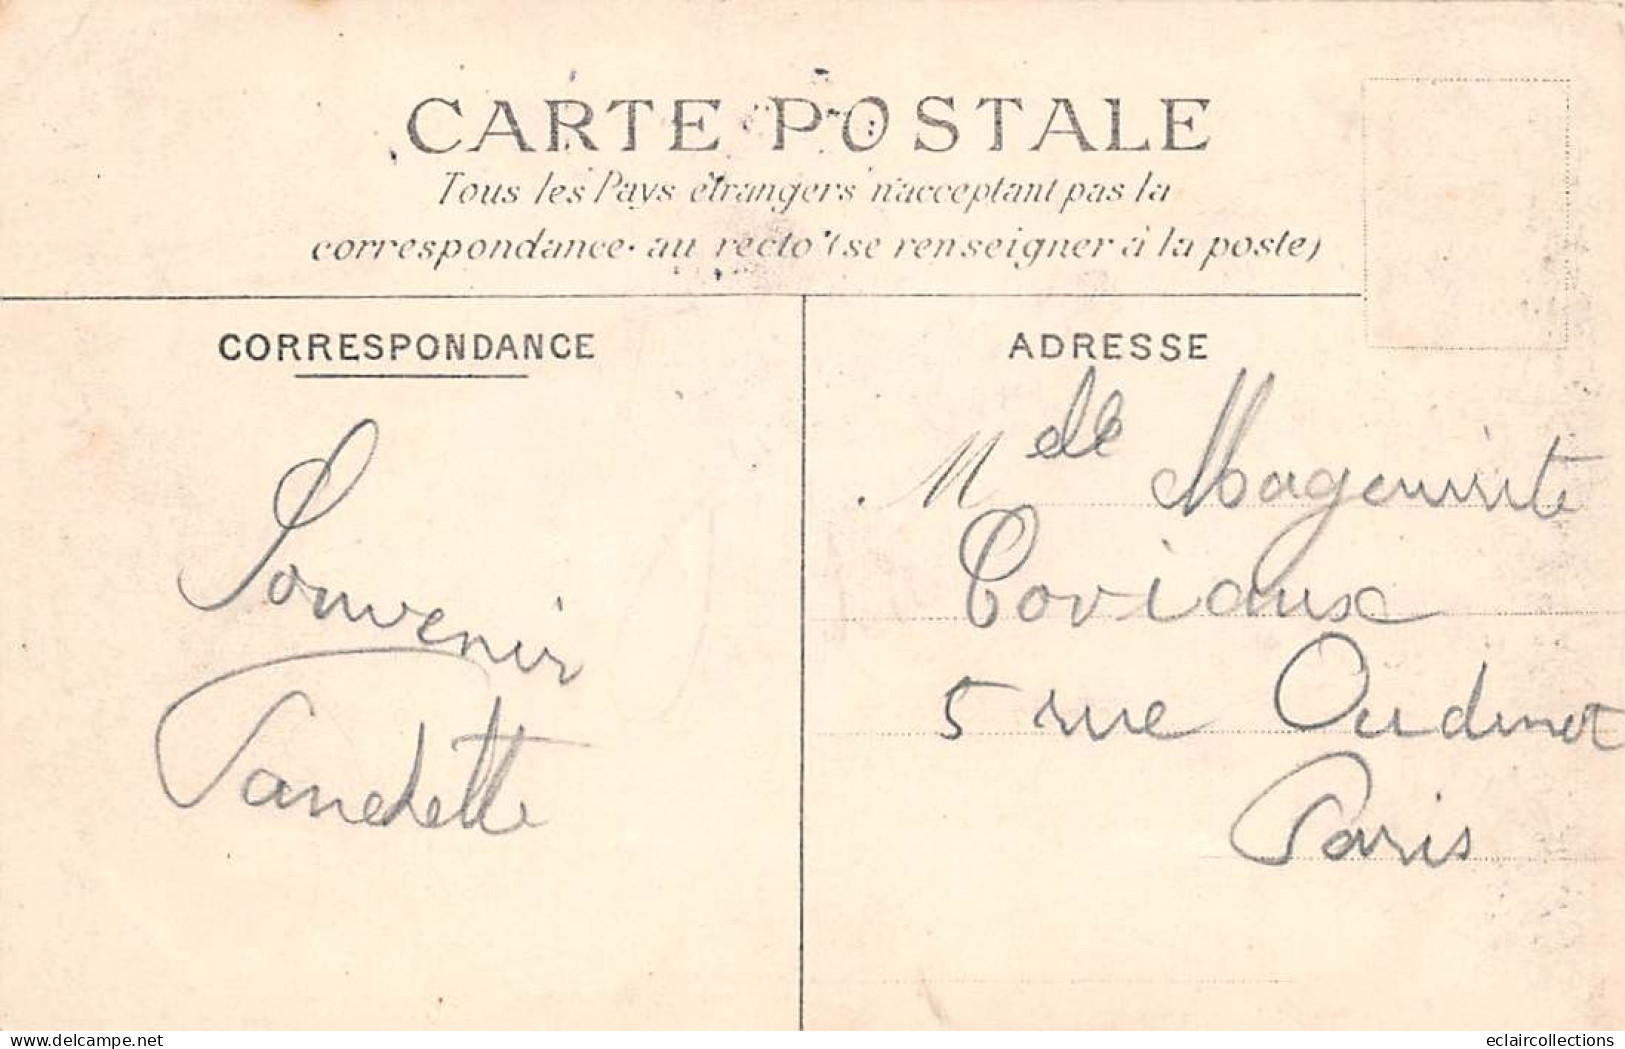 CARTE POSTALE
Tous les Pays étrangers n'acceptant pas la
correspondance au recto (se renseigner à la poste)
CORRESPONDANCE
ADRESSE
Souvenir
Mdlle Marguerite
5 rue Oudinot
Paris
delcampe.net
eclaircollections